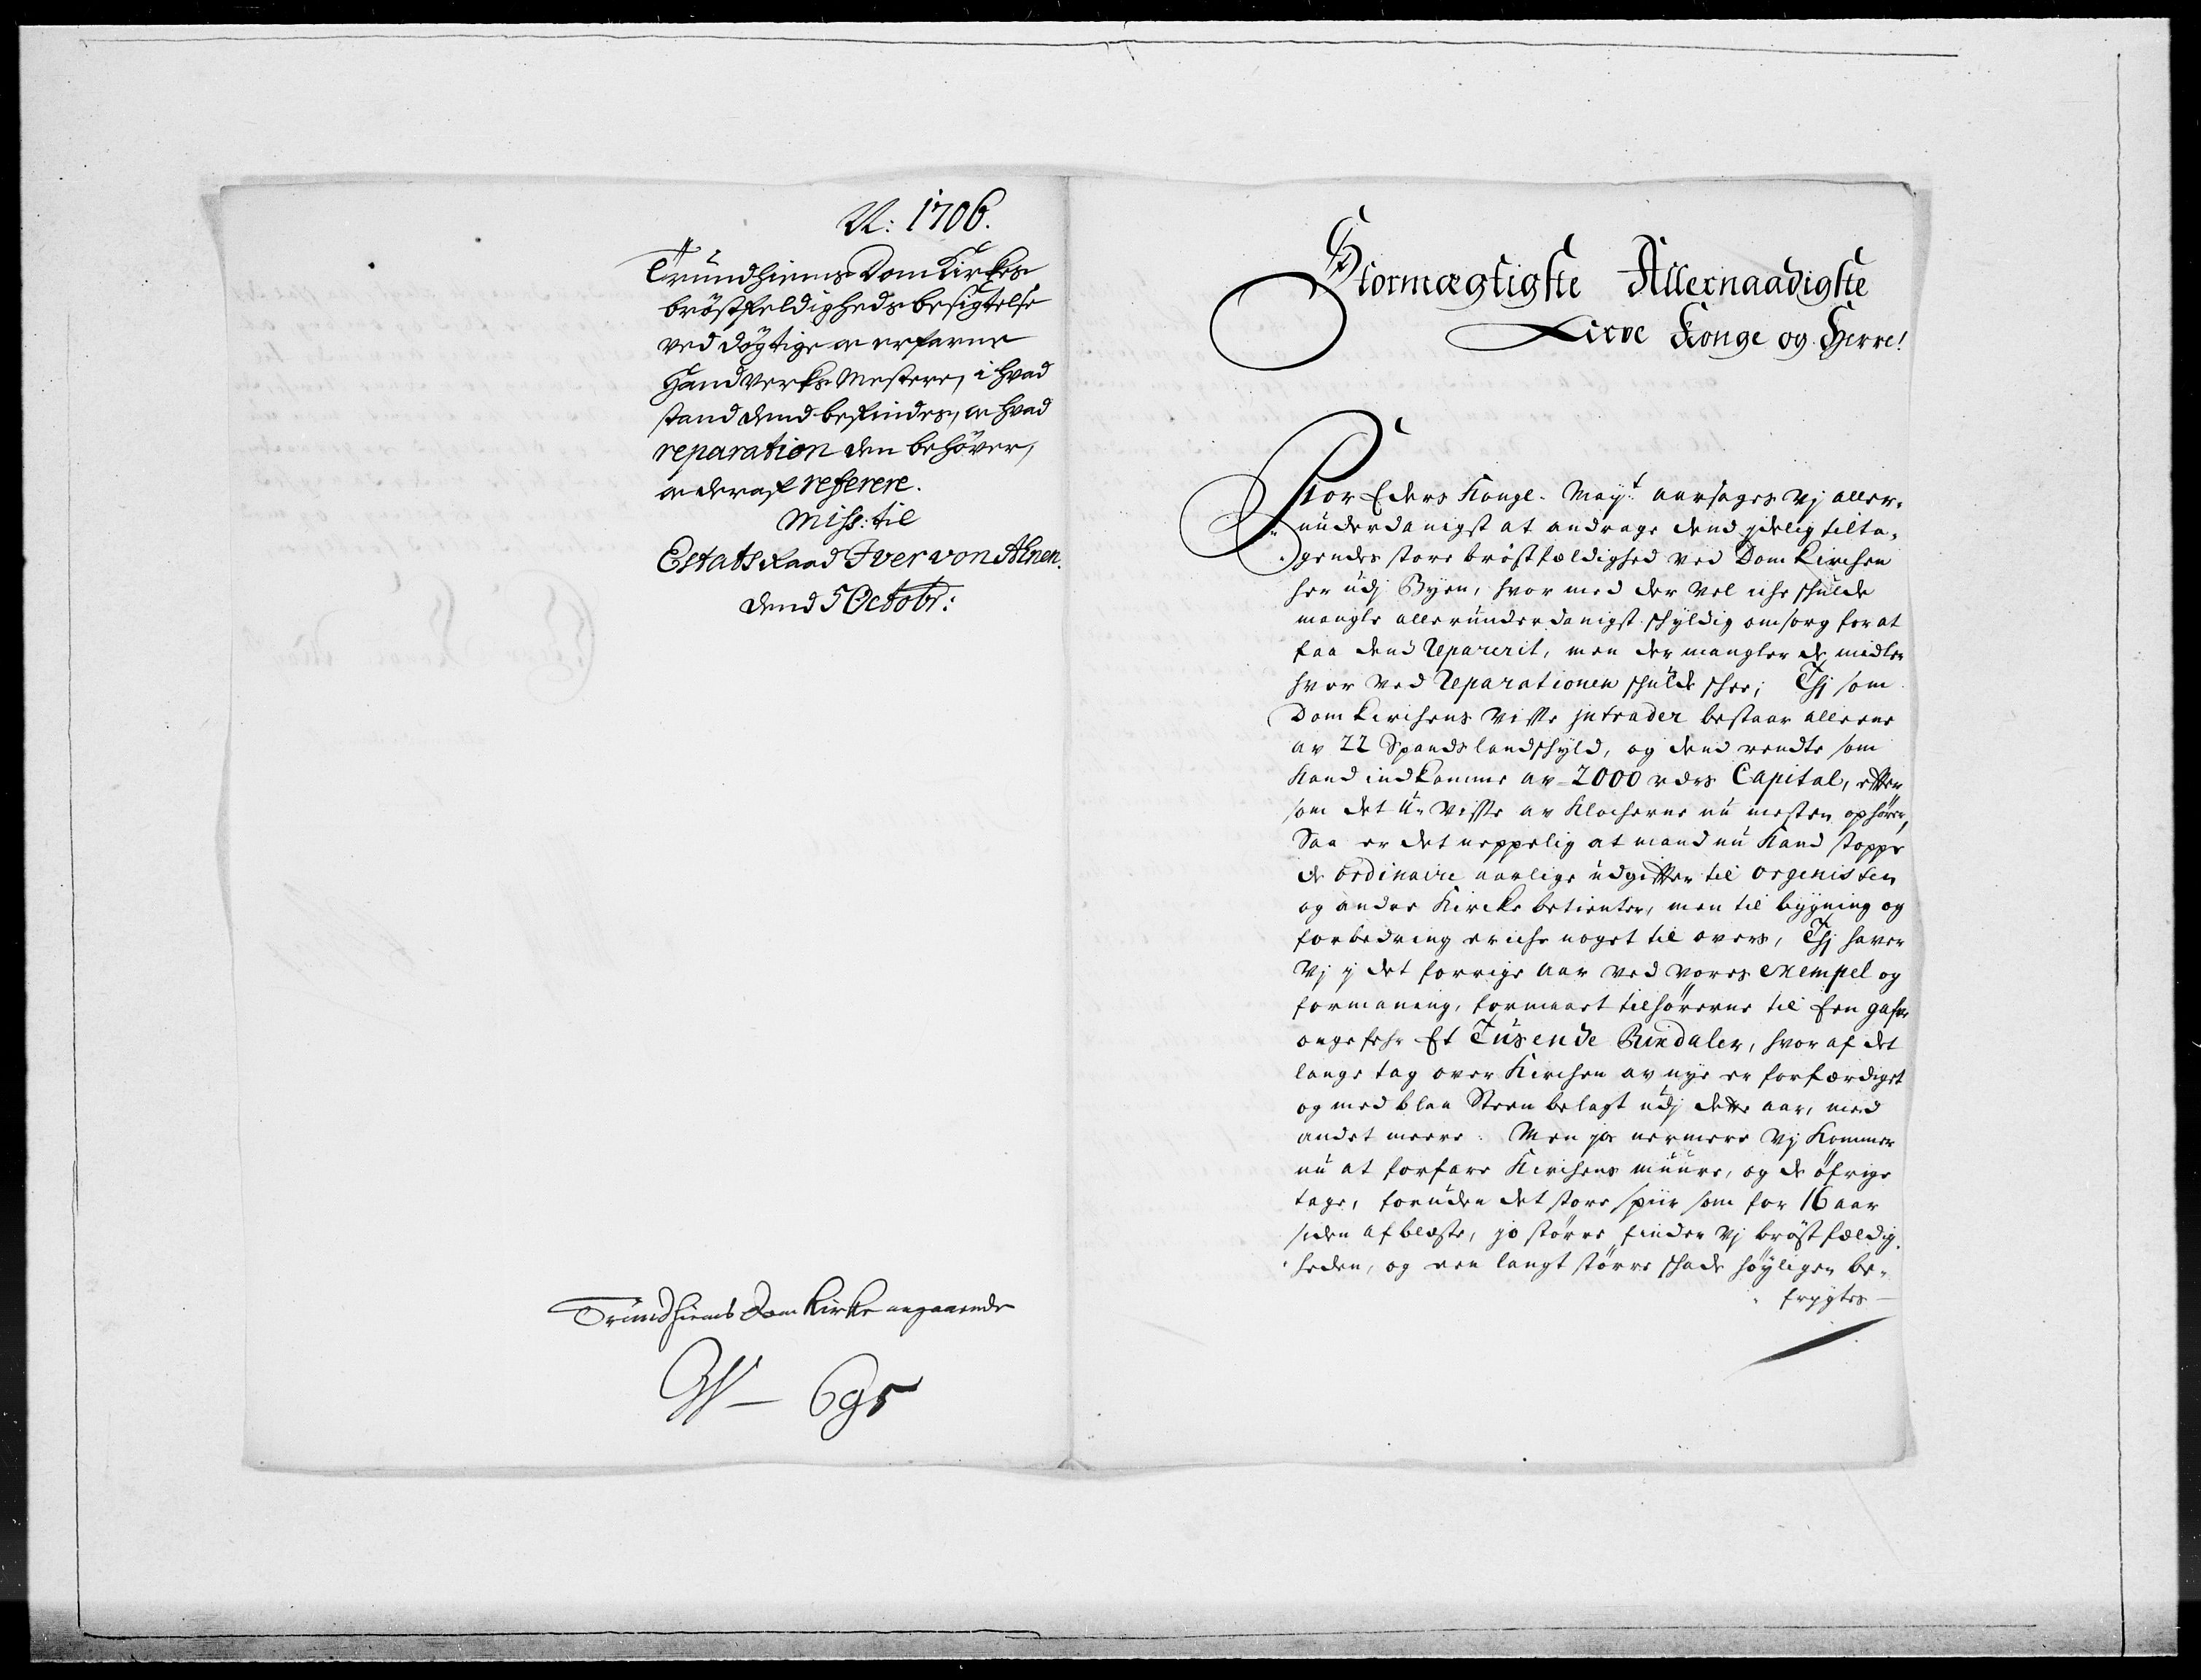 A: 1706.
Trundhiems Dom Kirkes
bröstfeldigheds besigtelse
ved dögtige og erfarne
Handverks Mestere, i hvad
stand dend befindes, og hvad
reparation den behöver,
og deraf referere.
Miss: til
Estats Raad Iver von Ahnen.
dend 5 Octobr:
Trundhiems Dom Kirke angaaende
No 695
Stormægtigste Allernaadigste
Arve Konge og Herre!
For Eders Kongl. Mayt: aarsages vj aller-
underdanigst at andrage dend ydelig tilta-
gendes store bröstfældighed ved Dom Kirchen
her udj Byen, hvor med der vel iche schulde
mangle allerunderdanigst schyldig omsorg for at
faa dend Reparerit, men der mangler de midler
hvor ved Reparationen schulde schee; Thj som
Dom Kirchens visse jntrader bestaar alleene
av 22 Spands landschyld, og dend rendte som
Kand indkomme av 2000 rdrs Capital, efter
som det u-visse av Klocherne nu mesten ophörer,
Saa er det neppelig at mand nu Kand stoppe
de ordinaire aarlige udgifter til orgenisten
og andre Kircke betienter, men til bygning og
forbedring er iche noget til overs, Thj haver
Vj i det forrige aar ved vores exempel og
formaning, formaaet tilhörerne til Een gafve
ongefehr Et Tusende Rixdaler, hvor af det
lange tag over Kirchen av nye er forfærdiget
og med blaa Steen belagt udj dette aar, med
andet meere. Men jo nermere vj Kommer
nu at forfare Kirchens muure, og de öfrige
tage, foruden det store spiir som for 16 aar
siden afblæste, jo större finder vj bröstfældig-
heden, og een langt större schade höyligen be-
frygtes